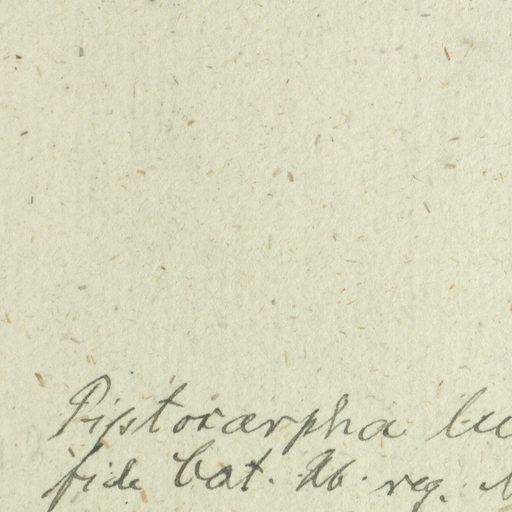 Piptocarpha lu
fide Cat. Hb. reg.